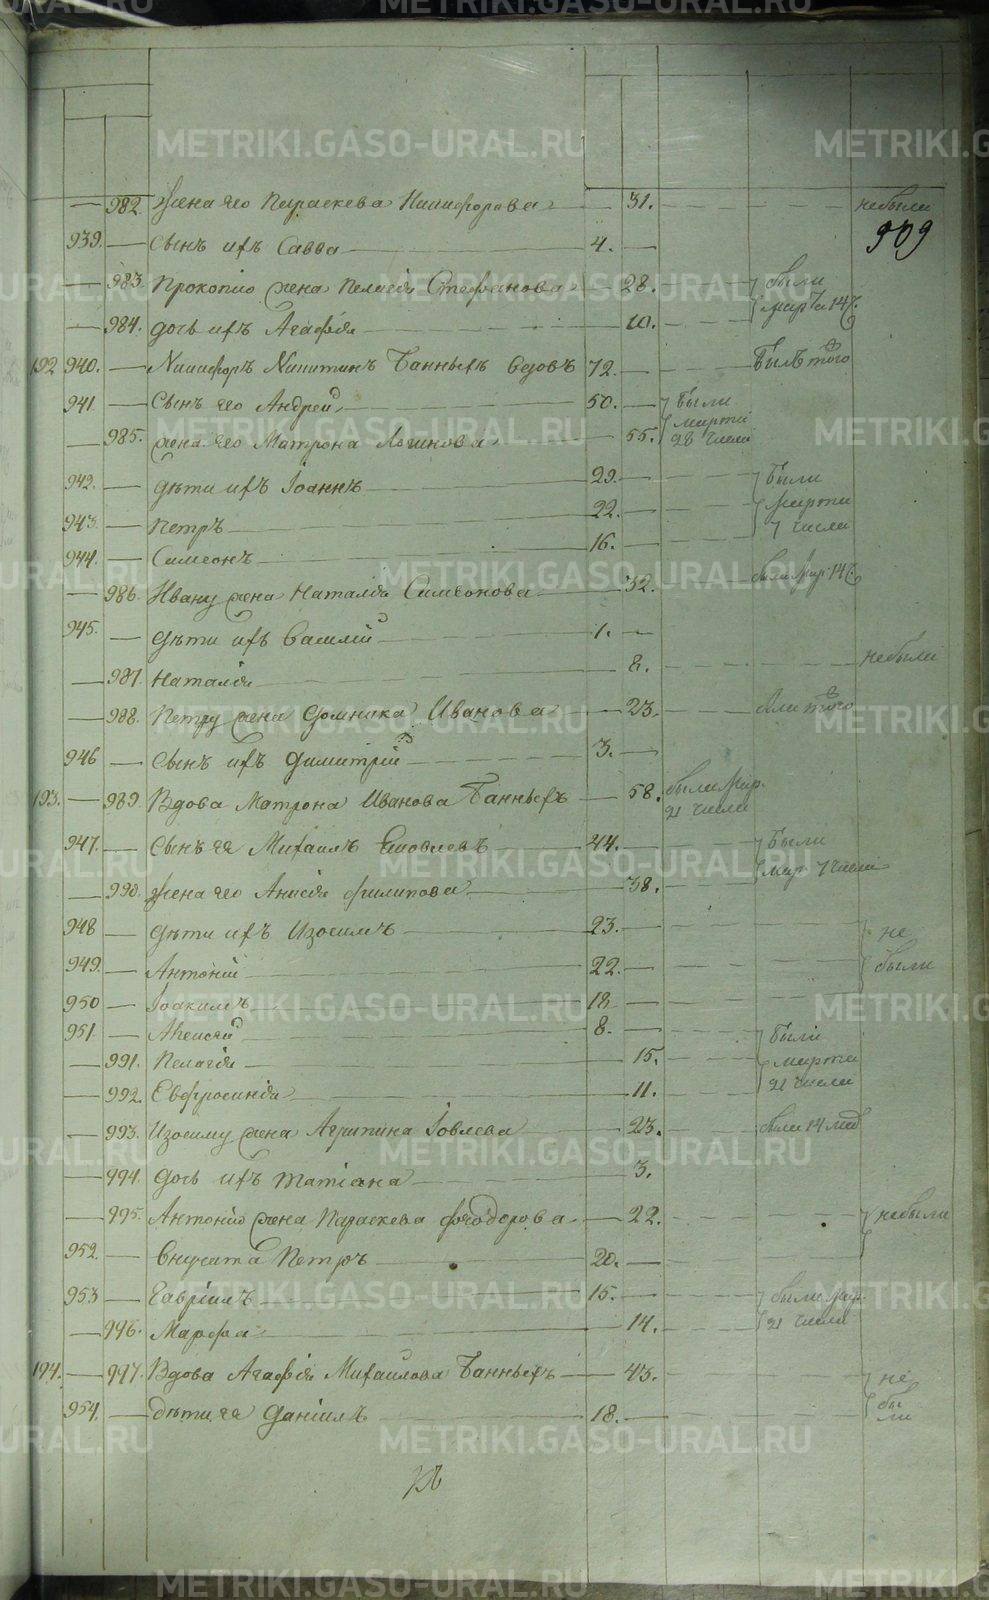 METRIKI.GASO-URAL.RU
982. Жена его Параскева Никифорова 31. небыли
909
939. Сынъ ихъ Савва 4.
983. Прокопию жена Пелагѣя Стефанова 28. были
984. дочь ихъ Агафія 10. марта 14
192 940. Никифоръ Никитинъ Банныхъ вдовъ 72. былъ того
941. Сынъ его Андрей 50. были
985. жена его Матрона Логинова 55. марта 28 числа
942. дѣти ихъ Іоаннъ 29. были
943. Петръ 22. марта 7 числа
944. Симеонъ 16.
986. Ивану жена Наталія Симеонова 32. были мар: 14
945. дѣти ихъ Василій 1.
987. Наталія 8. небыли
988. Петру жена Домника Иванова 23. того
946 сынъ ихъ Димитрій 3.
193. 989. Вдова Матрона Иванова Банныхъ 58. были мар. 21 числа
947. Сынъ ея Михаилъ Яковлевъ 44. были
990. жена его Анисія Филипова 38. мар. 7 числа
948 дѣти ихъ Изосимъ 23. не
949. Антоній 22. были
950 Іоакимъ 18
951. Алексѣй 8. были
991. Пелагія 15. марта
992. Евфросинія 11. 21 числа
993. Изосиму жена Агрипина Іовлева 23. были 14
994. дочь ихъ Татіана 3.
995. Антонію жена Параскева Феодорова 22. небыли
952. Внучата Петръ 20.
953 Гавріилъ 15. были мар.
996. Марфа 14. 21 числа
194. 997. Вдова Агафія Михайлова Банныхъ 43. не
954. дѣти ея Даніилъ 18. бы
ли